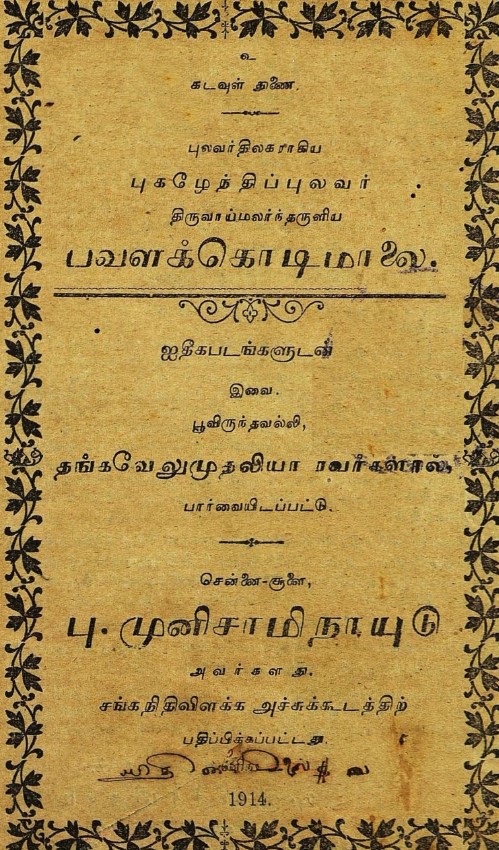 உ
கடவுள் துணை.
புலவர்திலகராகிய
புகழேந்திப்புலவர்
திருவாய்மலர்ந்தருளிய
பவளக்கொடிமாலை.
ஐதீகபடங்களுடன்
இவை.
பூவிருந்தவல்லி,
தங்கவேலுமுதலியா ரவர்களால்
பார்வையிடப்பட்டு.
சென்னை-சூளை,
பு. முனிசாமிநாயுடு
அவர்களது.
சங்கநிதிவிளக்க அச்சுக்கூடத்திற்
பதிப்பிக்கப்பட்டது.
1914.